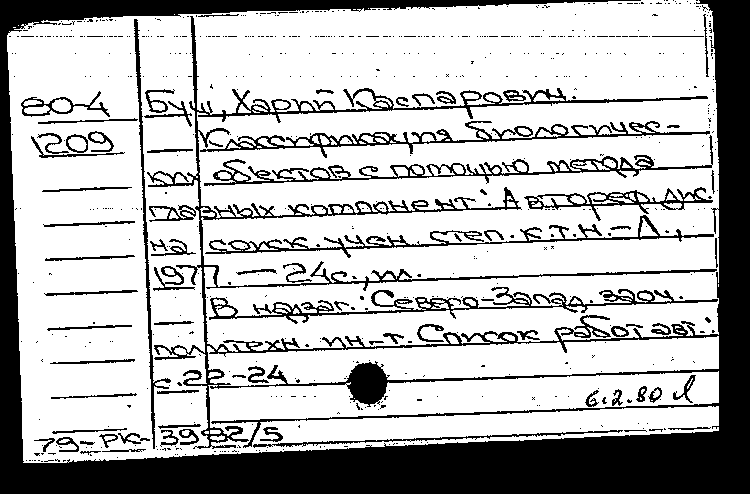 80-4 Буш, Харий Каспарович.
1209 Классификация биологичес-
ких объектов с помощью метода
главных компонент: Автореф. дис.
на соиск. учен. степ. к.т.н. – Л.,
1977. — 24с., ил.
В надзаг.: Северо-Запад. заоч.
политехн. ин-т. Список работ авт.:
с. 22-24.
6.2.80
79-РК- 3982/5